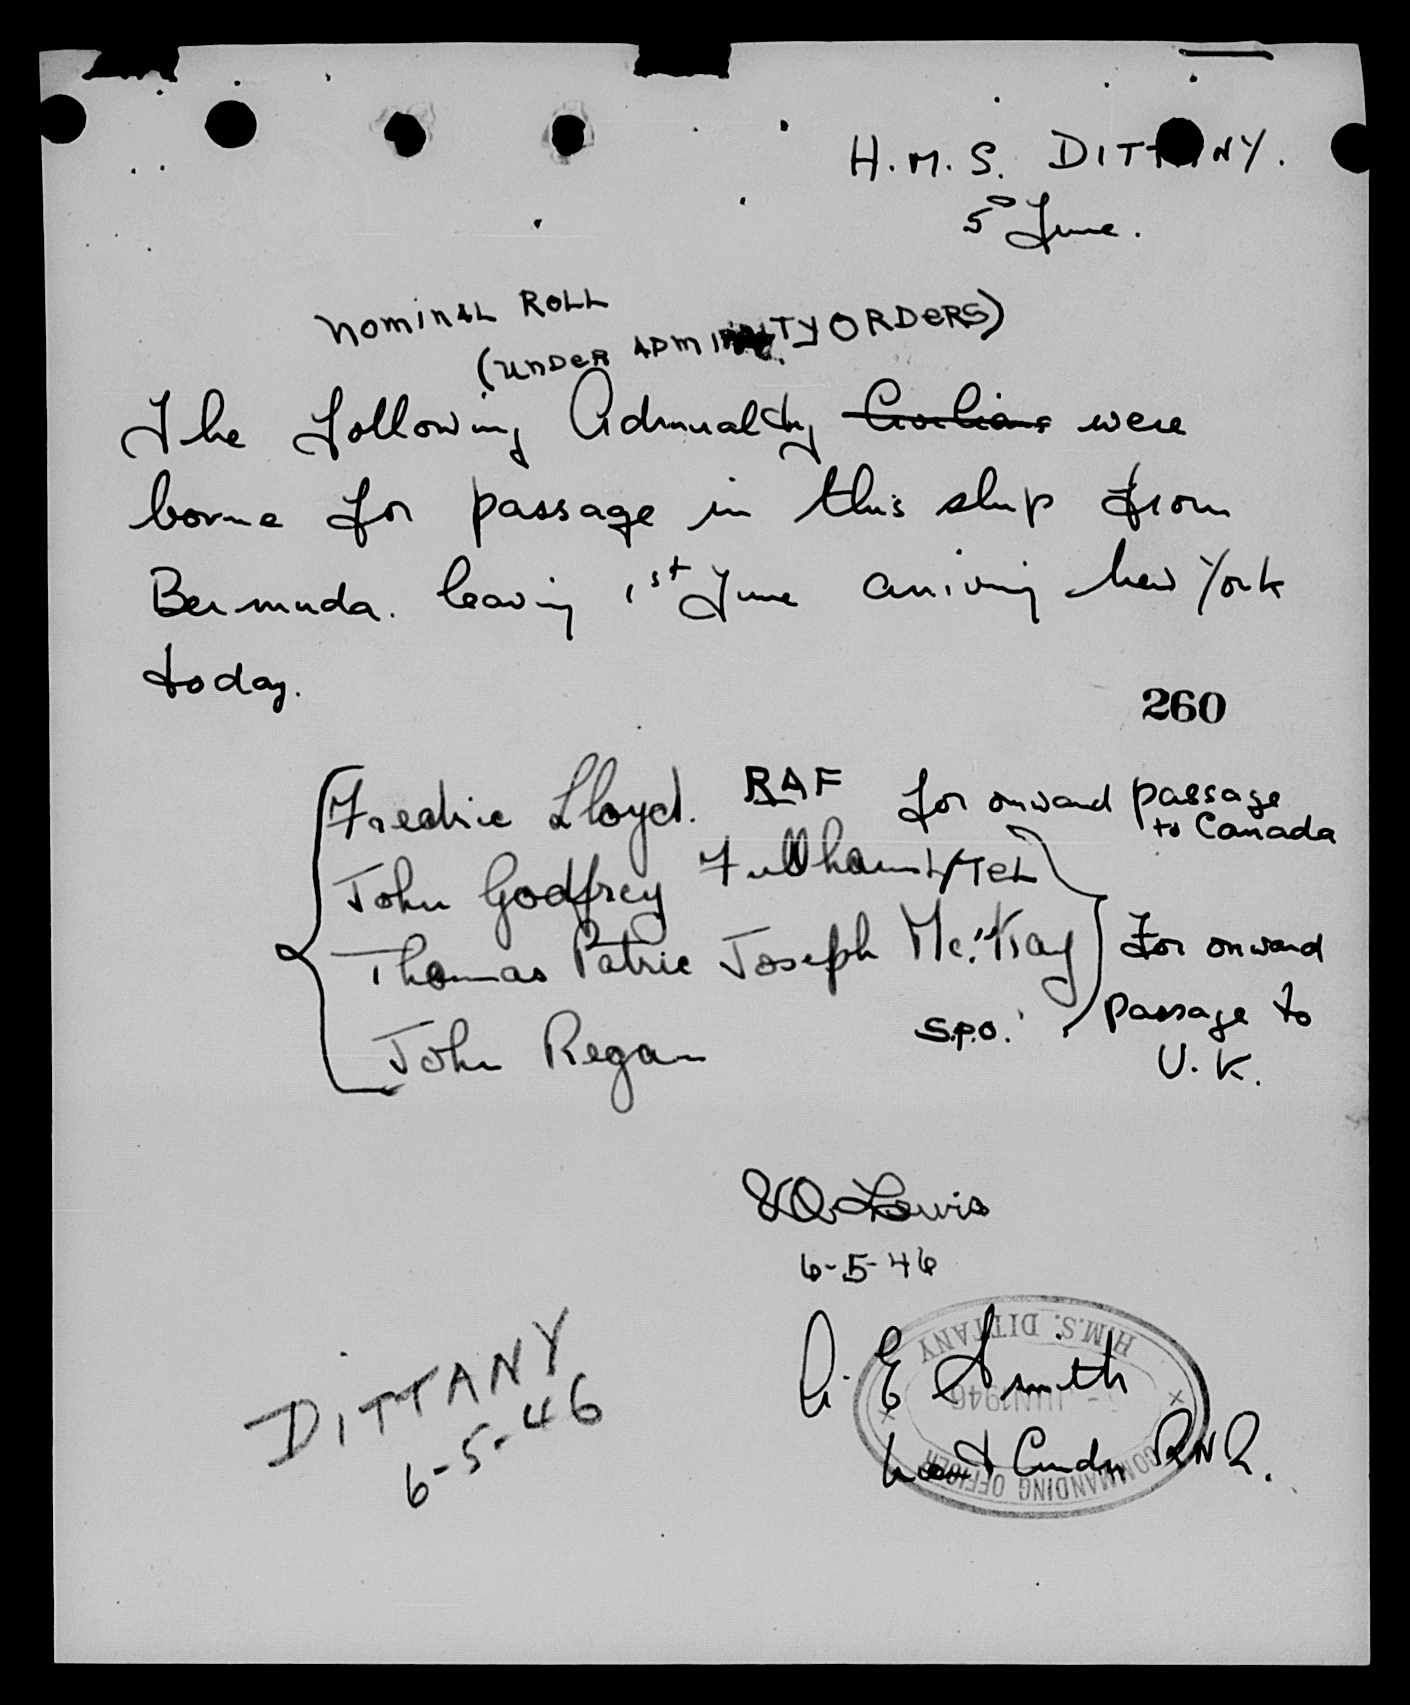 H.M.S. DITTANY.
5th June.
NOMINAL ROLL
(UNDER ADMIRALTY ORDERS)
The following Admiralty Civilians were
borne for passage in this ship from
Bermuda. leaving 1st June arriving New York
today.
260
Fredric Lloyd. RAF for onward passage
to Canada
John Godfrey Fullham L/TEL
Thomas Patric Joseph Mc.Kay For onward
S.P.O. passage to
John Regan U.K.
Lewis
6-5-46
H.M.S. DITTANY
A. E Smith
JUN 1946
Lieut Cmdr RNR.
COMMANDING OFFICER
DITTANY
6-5-46